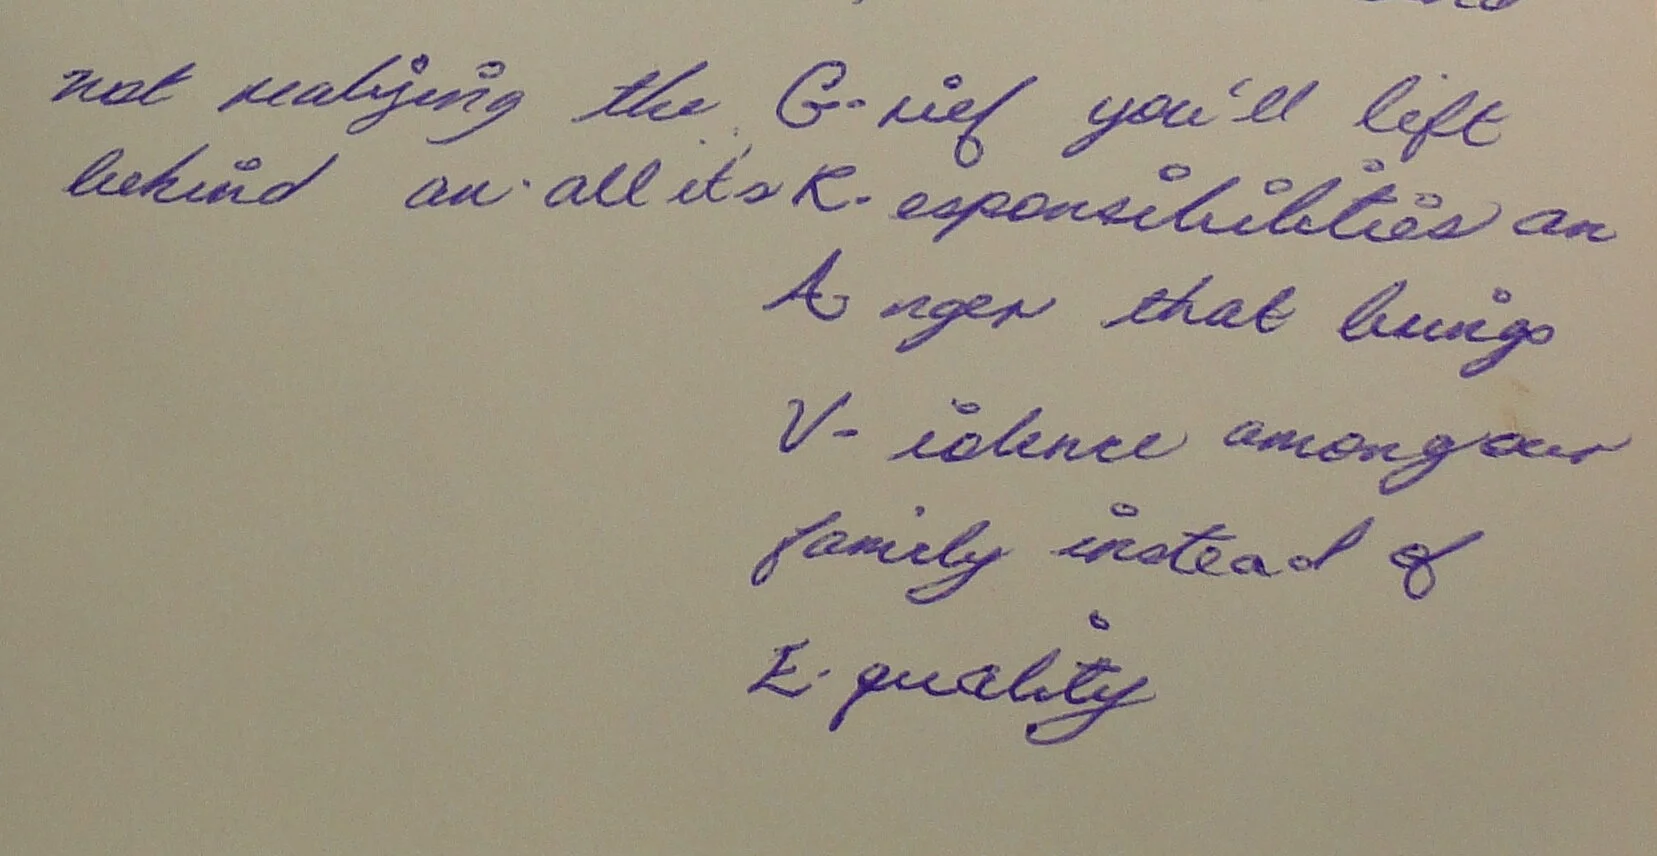 not realizing the G-rief you'll lift
behind an all it's R-esponsibilities an
A nger that brings
V-iolence among our
family instead of
E-quality